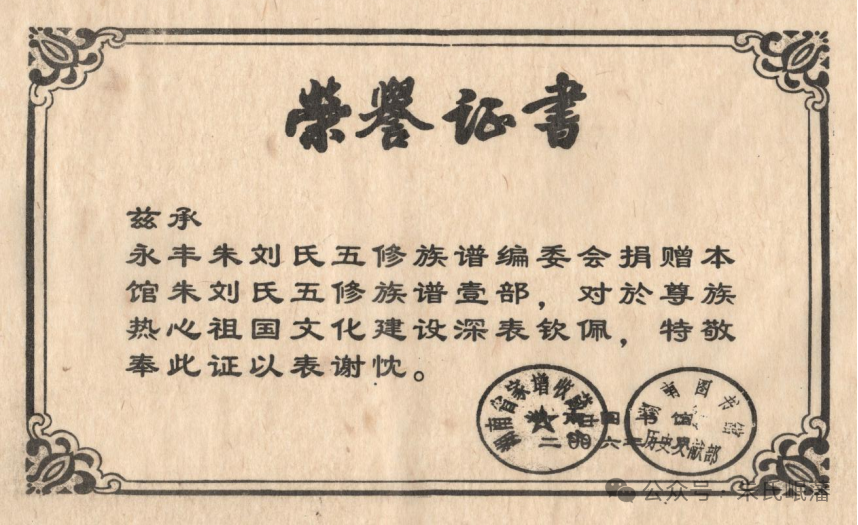 荣誉证书
兹承
永丰朱刘氏五修族谱编委会捐赠本
馆朱刘氏五修族谱壹部，对於尊族
热心祖国文化建设深表钦佩，特敬
奉此证以表谢忱。
湖南图书馆
历史文献部
公众号·朱氏岷藩